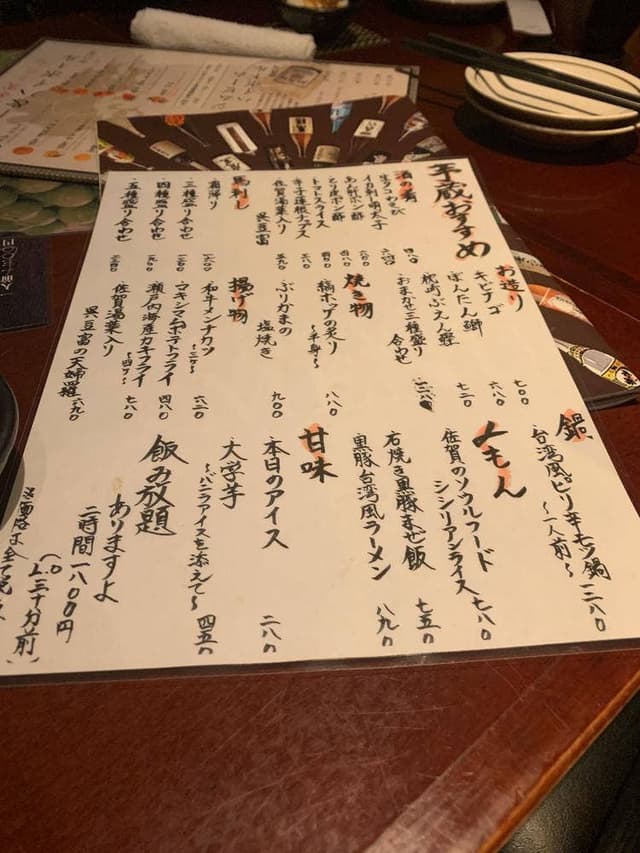 年蔵おすすめ
酒の肴
生タコわさび
四八〇
イカ刺し明太子
あん肝ポン酢
とり皮ポン酢
トマトスライス
辛子蓮根チップス
佐賀湯葉入り
呉豆富
馬刺し
霜降り
三種盛り合わせ
四種盛り合わせ
五種盛り合わせ
お造り
キビナゴ
七〇〇
ぼたん鰤
六八〇
枕崎ぶえん鰹
七二〇
おまかせ三種盛り
合わせ
焼き物
縞ホッケの炙り
〜半身〜
八八〇
ぶりかまの
塩焼き
九〇〇
揚げ物
和牛メンチカツ
〜二ケ〜
六二〇
ワキシマムポテトフライ
四八〇
瀬戸内海産カキフライ
〜四ケ〜
七八〇
佐賀湯葉入り
呉豆富の天婦羅
六九〇
鍋
台湾風ピリ辛モツ鍋
〜一人前〜
一二八〇
〆もん
佐賀のソウルフード
シシリアンライス
七八〇
石焼き黒豚まぜ飯
七五〇
黒豚台湾風ラーメン
八九〇
甘味
本日のアイス
二八〇
大学芋
〜バニラアイスを添えて〜
四五〇
飲み放題
ありますよ
二時間一八〇〇円
(L.O三十分前)